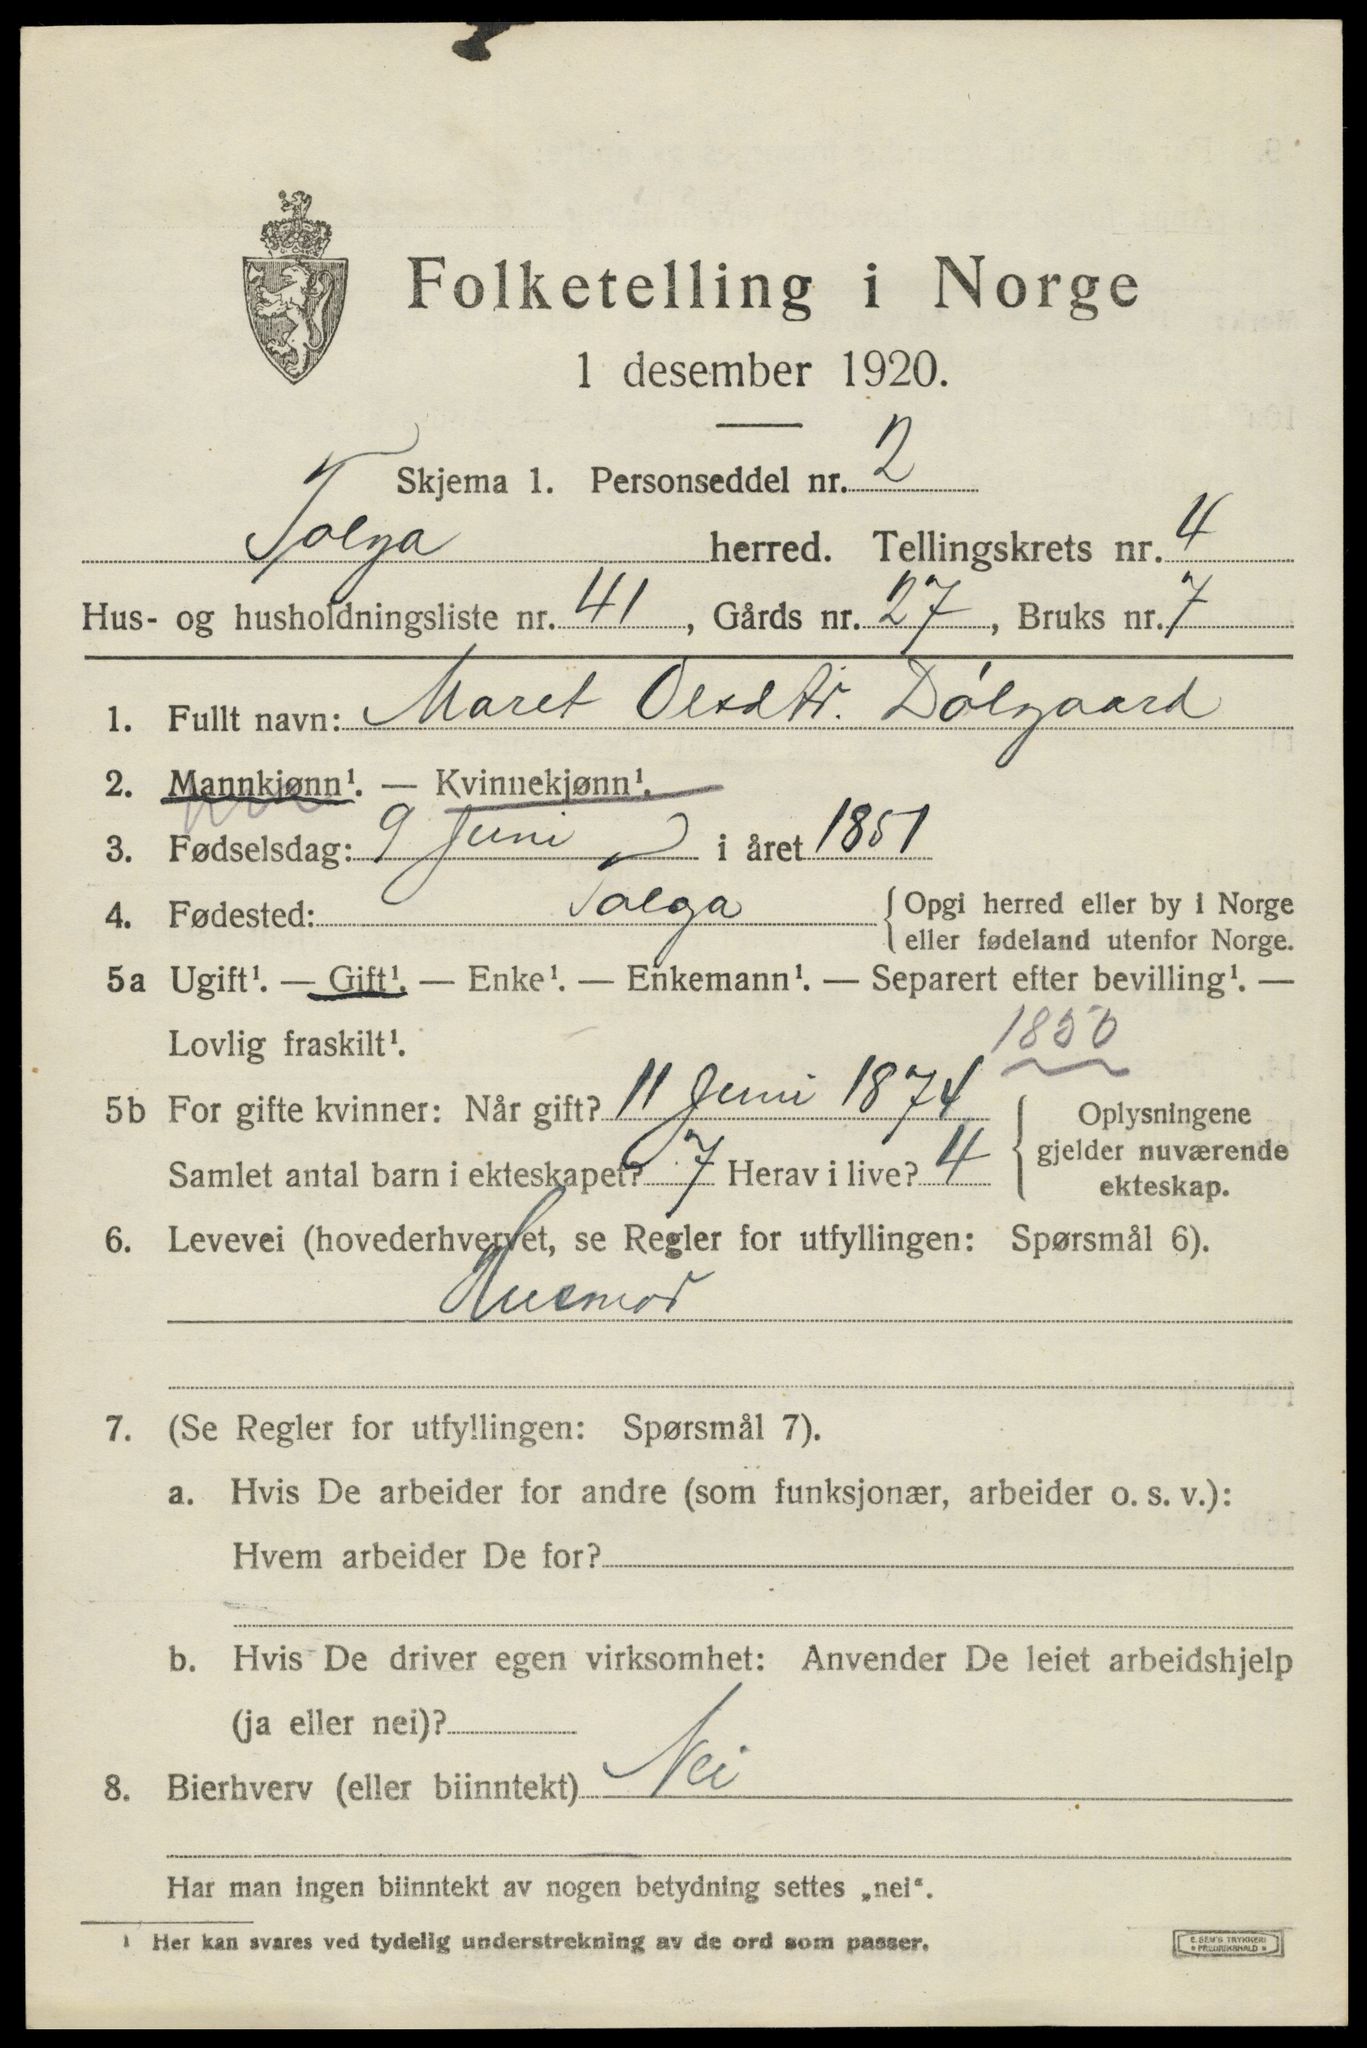 Folketelling i Norge
1 desember 1920.
Skjema 1. Personseddel nr. 2
Tolga herred. Tellingskrets nr. 4
Hus- og husholdningsliste nr. 41, Gårds nr. 27, Bruks nr. 7
1. Fullt navn: Maret Olsdtr. Dölgaard
2. Mannkjønn¹. — Kvinnekjønn¹.
3. Fødselsdag: 9 Juni i året 1851
4. Fødested: Tolga {Opgi herred eller by i Norge
eller fødeland utenfor Norge.
5a Ugift¹. — Gift¹. — Enke¹. — Enkemann¹. — Separert efter bevilling¹. —
Lovlig fraskilt¹.
1850
5b For gifte kvinner: Når gift? 11 Juni 1874
Samlet antal barn i ekteskapet? 7 Herav i live? 4
{Oplysningene
gjelder nuværende
ekteskap.
6. Levevei (hovederhvervet, se Regler for utfyllingen: Spørsmål 6).
Husmor
7. (Se Regler for utfyllingen: Spørsmål 7).
a. Hvis De arbeider for andre (som funksjonær, arbeider o. s. v.):
Hvem arbeider De for?
b. Hvis De driver egen virksomhet: Anvender De leiet arbeidshjelp
(ja eller nei)?
8. Bierhverv (eller biinntekt) Nei
Har man ingen biinntekt av nogen betydning settes „nei“.
¹ Her kan svares ved tydelig understrekning av de ord som passer.
E. SEM'S TRYKKERI
FREDRIKSHALD